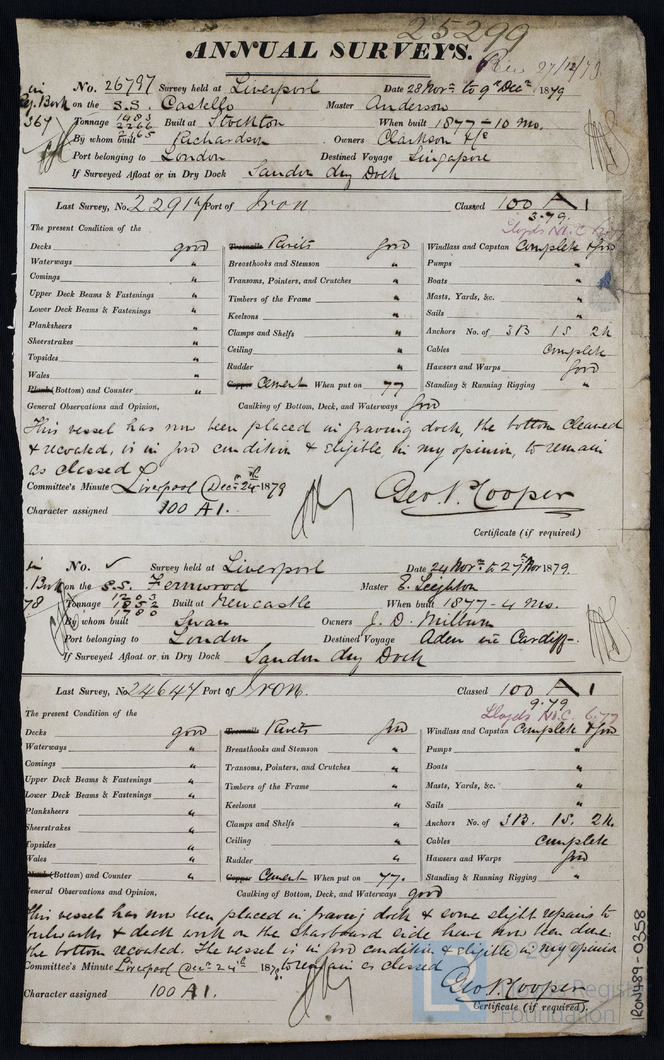 25299
ANNUAL SURVEYS.
Rec 27/12/79
No. 26797 Survey held at Liverpool Date 28 Novr to 9th Decr 1879
on the S.S. Castello Master Anderson
367 Tonnage 1483 2266 Built at Stockton When built 1877 - 10 mo.
By whom built Richardson Owners Clarkson &c
Port belonging to London Destined Voyage Singapore
If Surveyed Afloat or in Dry Dock Sandon dry Dock
Last Survey, No. 22914 Port of Iron Classed 100 A 1
3.79.
Lloyds M.C.
The present Condition of the
Decks good Treenails Rivets good Windlass and Capstan Complete & good
Waterways " Breasthooks and Stemson " Pumps "
Comings " Transoms, Pointers, and Crutches " Boats "
Upper Deck Beams & Fastenings " Timbers of the Frame " Masts, Yards, &c. "
Lower Deck Beams & Fastenings " Keelsons " Sails "
Planksheers " Clamps and Shelfs " Anchors No. of 3B 1S 2K
Sheerstrakes " Ceiling " Cables Complete
Topsides " Rudder " Hawsers and Warps good
Wales " Copper Cement When put on 77 Standing & Running Rigging "
Plank (Bottom) and Counter "
General Observations and Opinion, Caulking of Bottom, Deck, and Waterways good
This vessel has now been placed in graving dock, the bottom cleaned
& recoated, is in good condition & eligible, in my opinion, to remain
as classed
Committee's Minute Liverpool Decr 24th 1879
Geo. N. Cooper
Character assigned 100 A1.
Certificate (if required)
No. ✓ Survey held at Liverpool Date 24 Novr to 27th Nov 1879.
on the S.S. Fernwood Master E. Leighton
78 Tonnage 1203 1852 1780 Built at Newcastle When built 1877 - 4 mo.
By whom built Swan Owners J. D. Milburn
Port belonging to London Destined Voyage Aden via Cardiff.
If Surveyed Afloat or in Dry Dock Sandon dry Dock
Last Survey, No. 24647 Port of Iron. Classed 100 A 1
9.79
Lloyds M.C. 6.77
The present Condition of the
Decks good Treenails Rivets good Windlass and Capstan Complete & good
Waterways " Breasthooks and Stemson " Pumps "
Comings " Transoms, Pointers, and Crutches " Boats "
Upper Deck Beams & Fastenings " Timbers of the Frame " Masts, Yards, &c. "
Lower Deck Beams & Fastenings " Keelsons " Sails "
Planksheers " Clamps and Shelfs " Anchors No. of 3B. 1S. 2K.
Sheerstrakes " Ceiling " Cables Complete
Topsides " Rudder " Hawsers and Warps good
Wales " Copper Cement When put on 77. Standing & Running Rigging "
Plank (Bottom) and Counter "
General Observations and Opinion, Caulking of Bottom, Deck, and Waterways good
This vessel has now been placed in graving dock & some slight repairs to
bulwarks & deck work on the starboard side have now been done
the bottom recoated. The vessel is in good condition & eligible in my opinion
Committee's Minute Liverpool Decr 24th 1879 to remain as classed
Geo. N. Cooper
Character assigned 100 A1.
Certificate (if required).
IRON489-0358
Register
Foundation